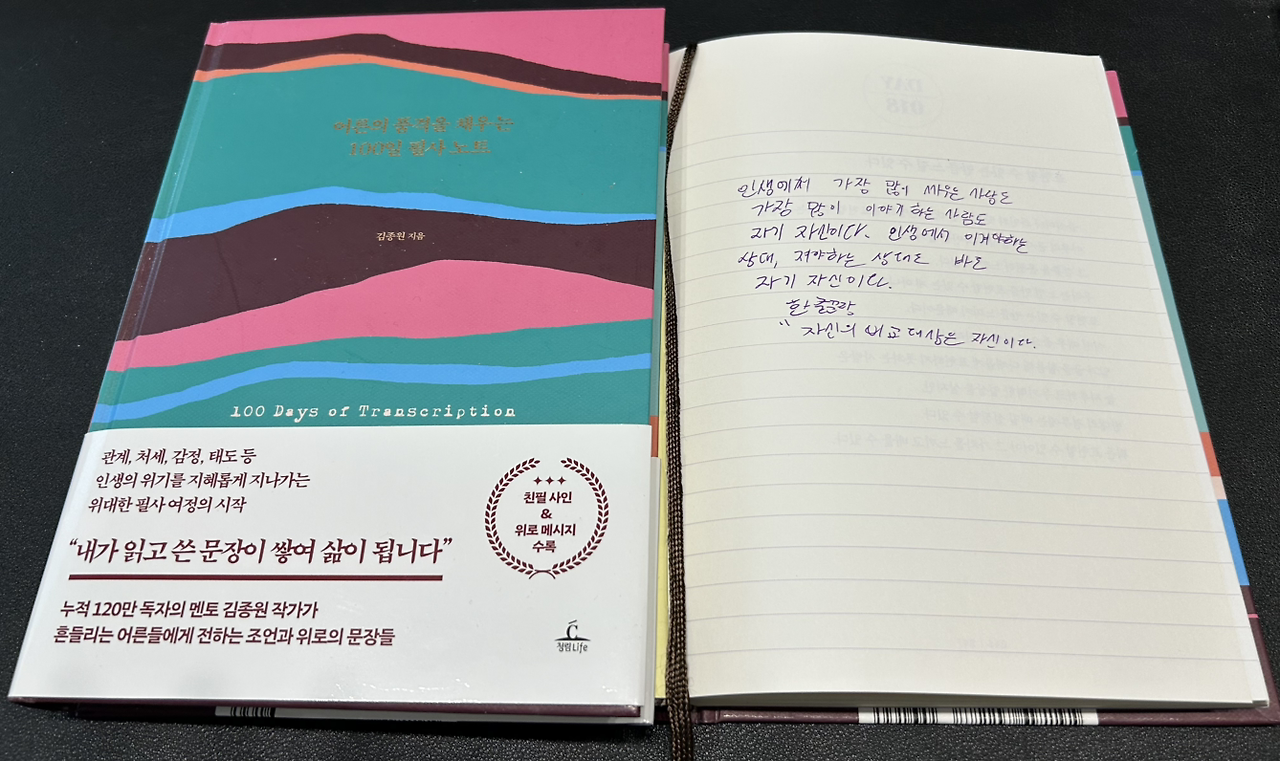 어른의 품격을 채우는
100일 필사 노트
김종원 지음
100 Days of Transcription
관계, 처세, 감정, 태도 등
인생의 위기를 지혜롭게 지나가는
위대한 필사 여정의 시작
“내가 읽고 쓴 문장이 쌓여 삶이 됩니다”
누적 120만 독자의 멘토 김종원 작가가
흔들리는 어른들에게 전하는 조언과 위로의 문장들
친필 사인
&
위로 메시지
수록
청림Life
인생에서 가장 많이 싸우는 사람도
가장 많이 이야기 하는 사람도
자기 자신이다. 인생에서 이겨야하는
상대, 져야하는 상대도 바로
자기 자신이다.
한 줄 요약
" 자신의 비교 대상은 자신이다.